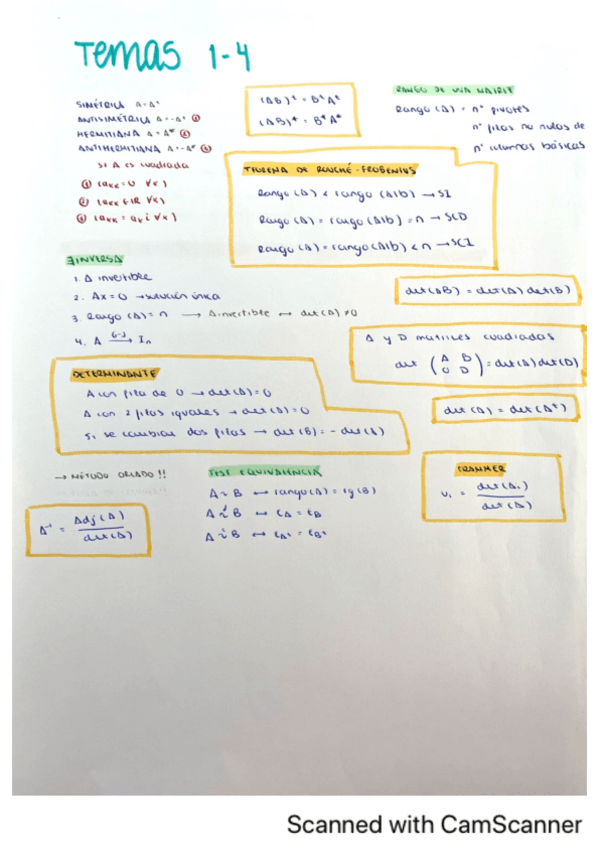 Temas 1-4
SIMÉTRICA A = Aᵗ
ANTISIMÉTRICA A = -Aᵗ ①
HERMITIANA A = A* ②
ANTIHERMITIANA A = -A* ③
si A es cuadrada
① (aₖₖ = 0 ∀k)
② (aₖₖ ∈ ℝ ∀k)
③ (aₖₖ = αₖi ∀k)
(AB)ᵗ = BᵗAᵗ
(AB)* = B*A*
RANGO DE UNA MATRIZ
Rango (A) = n° pivotes
n° filas no nulas de
n° columnas básicas
TEOREMA DE ROUCHÉ-FROBENIUS
Rango (A) < rango (A|b) → SI
Rango (A) = rango (A|b) = n → SCD
Rango (A) = rango (A|b) < n → SCI
∃INVERSA
1. A invertible
2. Ax = 0 → solución única
3. Rango (A) = n → A invertible ↔ det (A) ≠ 0
4. A G-J→ Iₙ
det (AB) = det (A) det (B)
A y D matrices cuadradas
det (A B
0 D) = det (A) det (D)
DETERMINANTE
A con fila de 0 → det (A) = 0
A con 2 filas iguales → det (A) = 0
Si se cambian dos filas → det (B) = - det (A)
det (A) = det (Aᵗ)
→ MÉTODO ORLADO !!
A⁻¹ = Adj (A) / det (A)
TEST EQUIVALENCIA
A ~ B ↔ rango (A) = rg (B)
A ~ B ↔ EA = EB
A ~ B ↔ EAᵗ = EBᵗ
CRAMMER
uᵢ = det (Aᵢ) / det (A)
Scanned with CamScanner